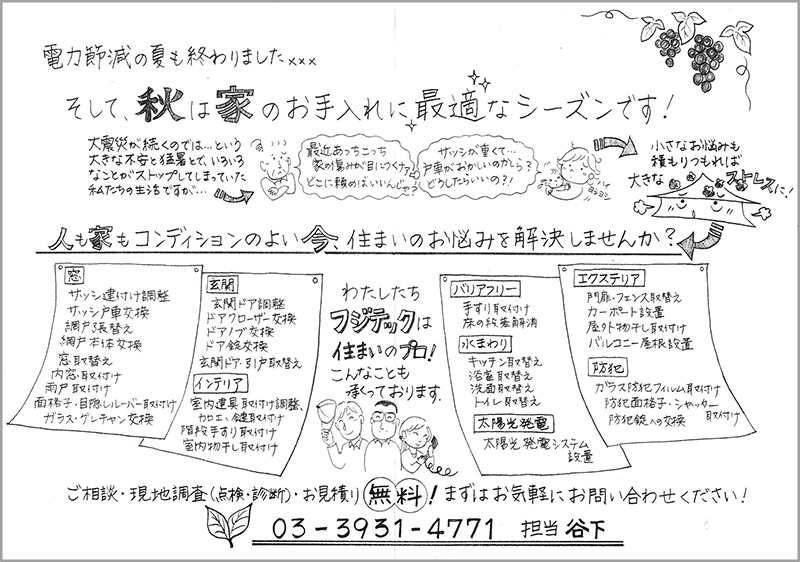 電力節減の夏も終わりました×××
そして、秋は家のお手入れに最適なシーズンです！
大震災が続くのでは…という
大きな不安と猛暑とで、いろいろ
なことがストップしてしまっていた
私たちの生活ですが…
最近あっちこっち
家の傷みが目につくけど
どこに頼めばいいんじゃろ?
サッシが重くて…
戸車がおかしいのかしら?
どうしたらいいの?!
ヨッコラ
小さなお悩みも
積もりつもれば
大きな
ストレスに!!
人も家もコンディションのよい今、住まいのお悩みを解決しませんか?
窓
サッシ建付け調整
サッシ戸車交換
網戸張替え
網戸本体交換
窓取替え
内窓取付け
雨戸取付け
面格子・目隠しルーバー取付け
ガラス・グレチャン交換
玄関
玄関ドア調整
ドアクローザー交換
ドアノブ交換
ドア錠交換
玄関ドア・引戸取替え
インテリア
室内建具取付け調整、
カロエ、鍵取付け
階段手すり取付け
室内物干し取付け
わたしたち
フジテックは
住まいのプロ!
こんなことも
承っております.
バリアフリー
手すり取付け
床の段差解消
水まわり
キッチン取替え
浴室取替え
洗面取替え
トイレ取替え
太陽光発電
太陽光発電システム
設置
エクステリア
門扉・フェンス取替え
カーポート設置
屋外物干し取付け
バルコニー屋根設置
防犯
ガラス防犯フィルム取付け
防犯面格子・シャッター
取付け
防犯錠への交換
ご相談・現地調査(点検・診断)・お見積り無料!まずはお気軽にお問い合わせください!
03-3931-4771 担当 谷下